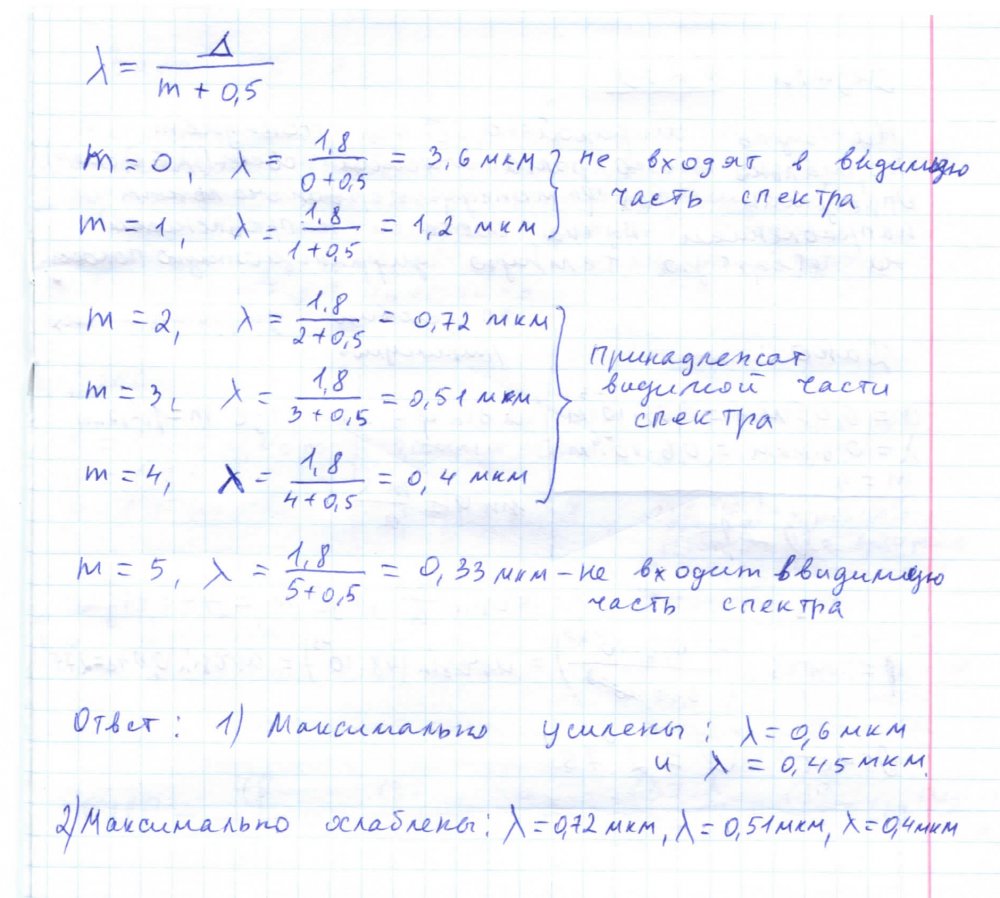 λ = Δ / (m + 0,5)
m = 0, λ = 1,8 / (0+0,5) = 3,6 мкм } не входят в видимую
m = 1, λ = 1,8 / (1+0,5) = 1,2 мкм } часть спектра
m = 2, λ = 1,8 / (2+0,5) = 0,72 мкм
m = 3, λ = 1,8 / (3+0,5) = 0,51 мкм } принадлежат видимой части спектра
m = 4, λ = 1,8 / (4+0,5) = 0,4 мкм
m = 5, λ = 1,8 / (5+0,5) = 0,33 мкм – не входит в видимую
часть спектра
Ответ: 1) Максимально усилены: λ = 0,6 мкм
и λ = 0,45 мкм.
2) Максимально ослаблены: λ = 0,72 мкм, λ = 0,51 мкм, λ = 0,4 мкм